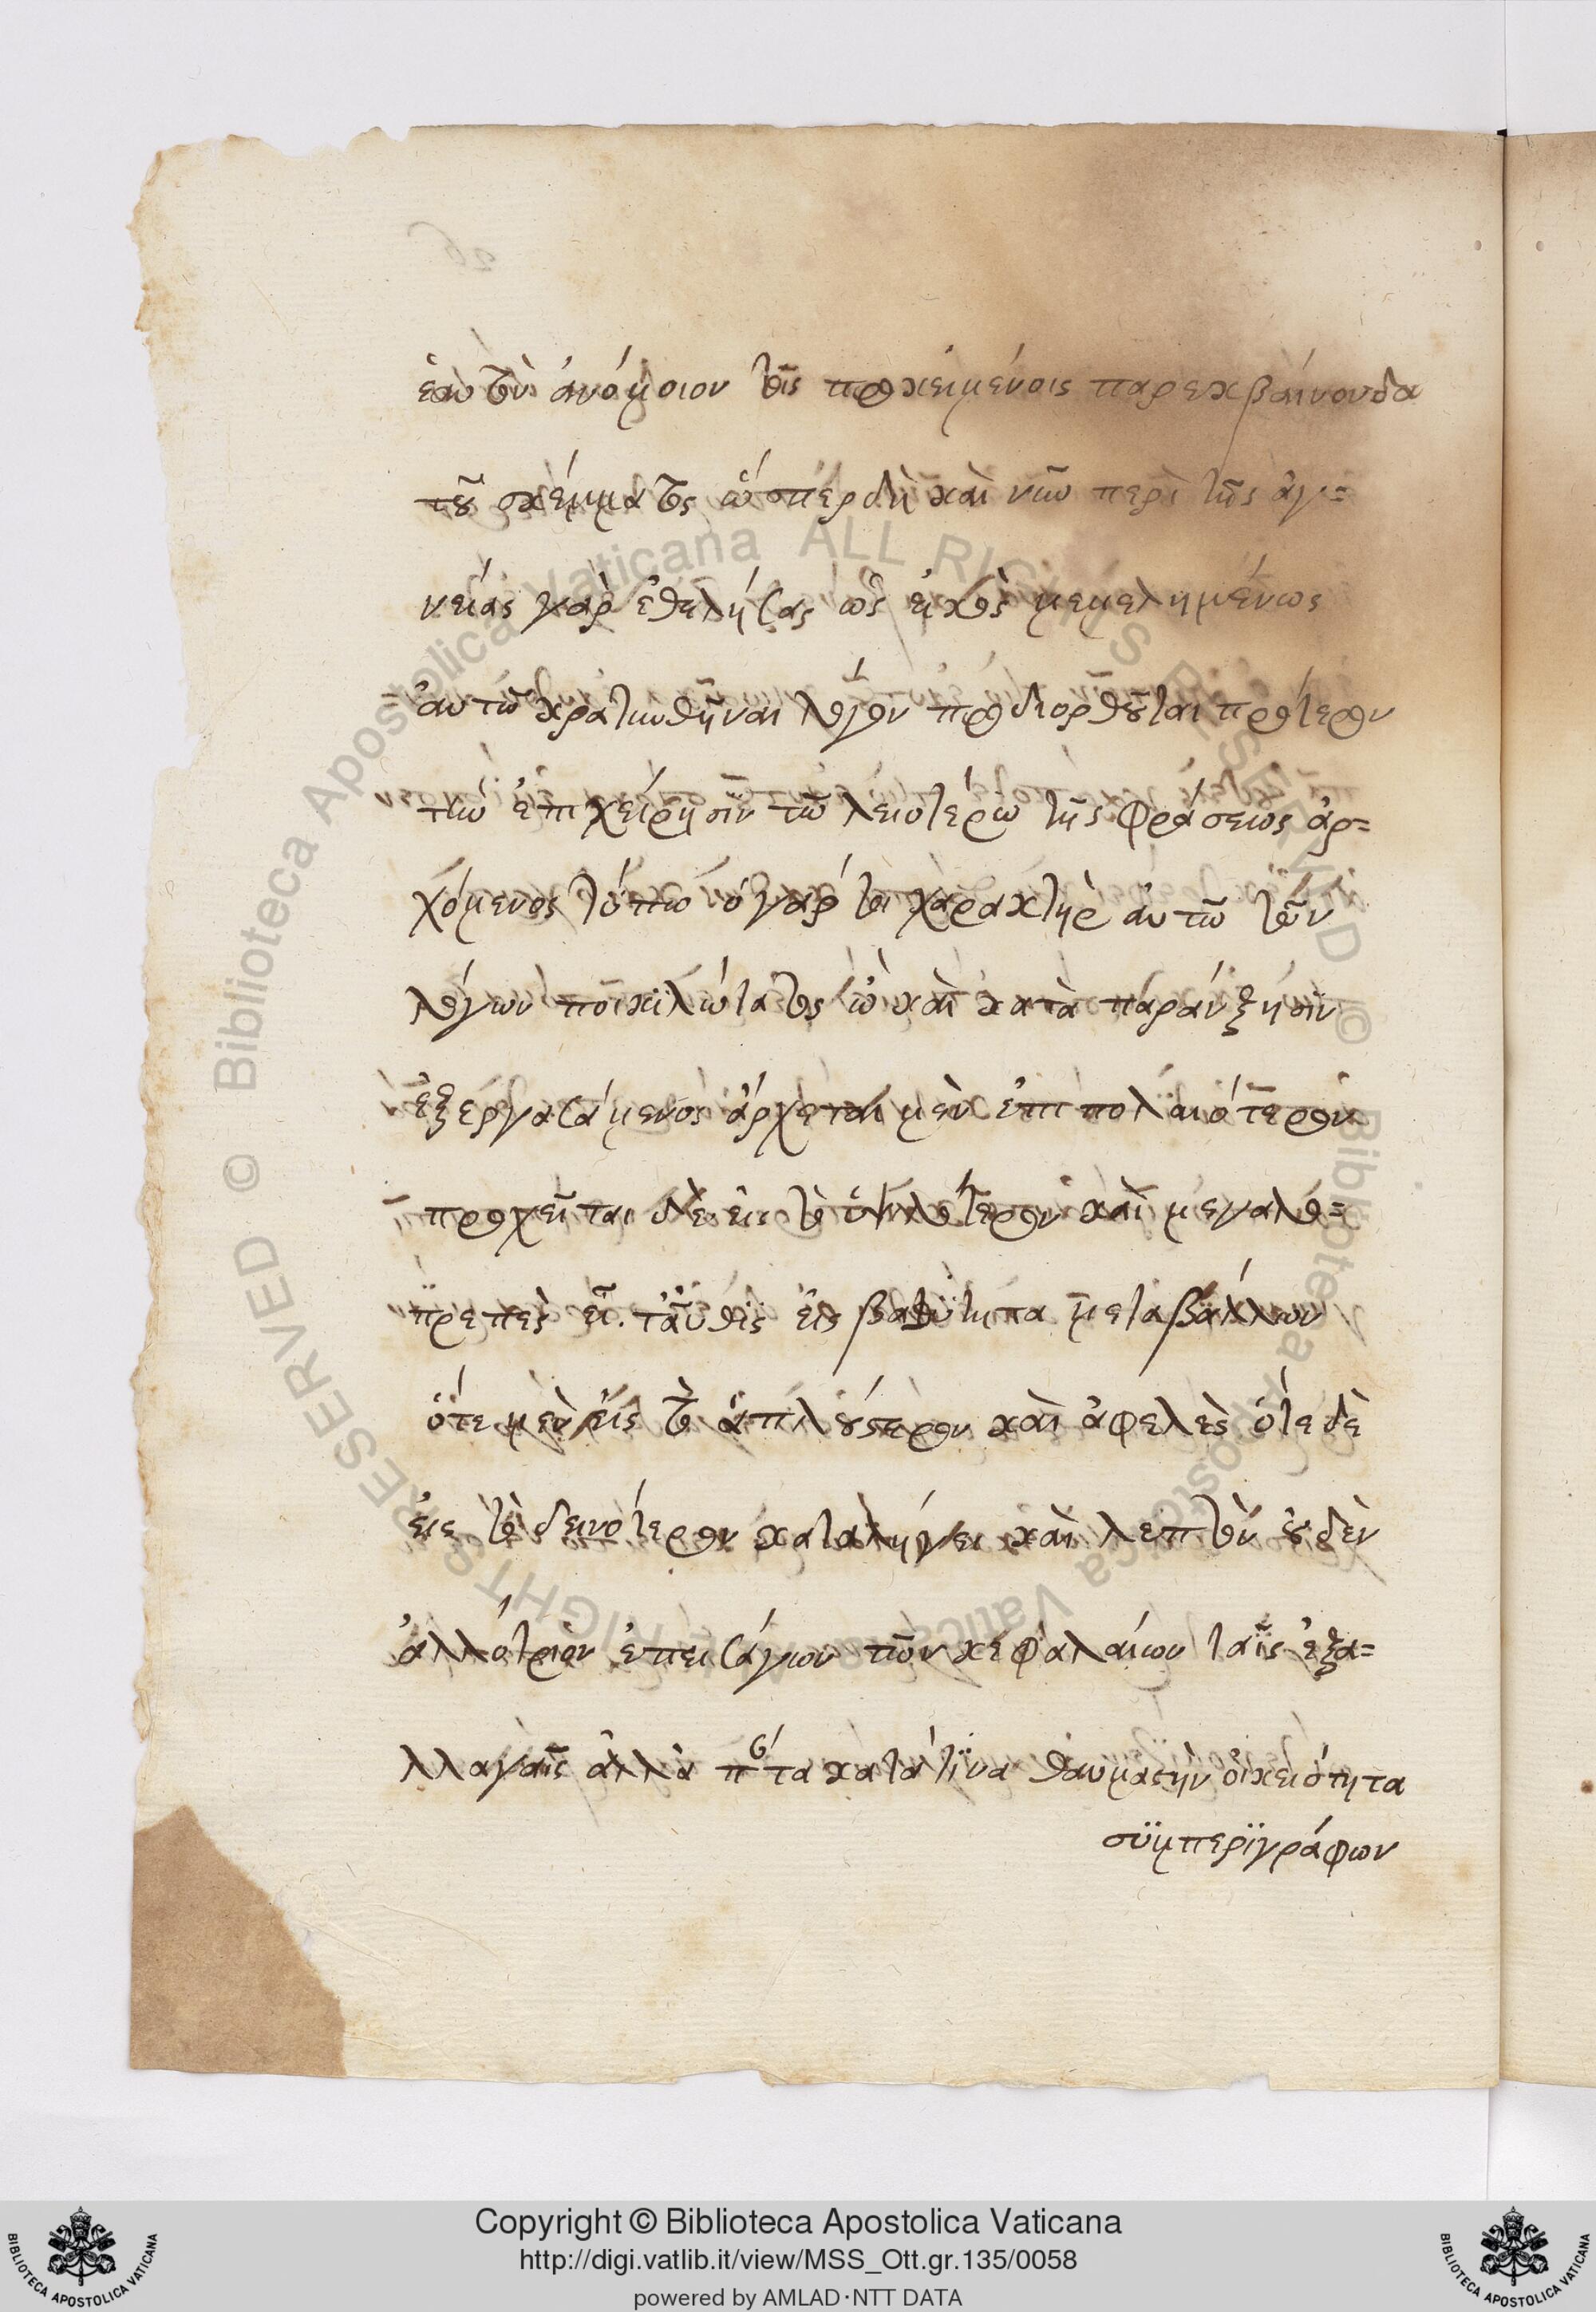 ἑαυτὸν ἀνόμοιον τοῖς προκειμένοις παρεκβαίνουσα
τοῦ σκέμματος ὥσπερ δὴ καὶ νῦν περὶ τῆς ἁγι=
νείας γὰρ ἐθελήσας ὡς εἰκὸς μεμελημένως
αὐτῶ κρατυνθῆναι λόγον προδιορθοῦται πρότερον
τὴν ἐπιχείρησιν τῶ λειοτέρω τῆς φράσεως ἀρ=
χόμενος τύπω ὁ γάρ τοι χαρακτὴρ αὐτῶ τῶν
λόγων ποικιλώτατος ὢ καὶ κατὰ παραύξησιν
ἐξεργασάμενος ἄρχεται μὲν ἐπιπολαιότερον
προχεῖται δὲ εἰς τὸ ὑψηλότερον καὶ μεγαλο=
πρεπὲς εἶ. ταῦθις εἰς βαθύτητα μεταβάλλων
ὅτε μὲν εἰς τὸ ἁπλούστερον καὶ ἀφελὲς ὁτε δὲ
εἰς τὸ δεινότερον καταλήγει καὶ λεπτὸν οὐδὲν
ἀλλότριον ἐπεισάγων τῶν κεφαλαίων ταῖς ἐξα=
λλαγαῖς ἀλλὰ πάντα κατά τινα θαυμαστὴν οἰκειότητα
συμπεριγράφων
Copyright © Biblioteca Apostolica Vaticana
http://digi.vatlib.it/view/MSS_Ott.gr.135/0058
powered by AMLAD·NTT DATA